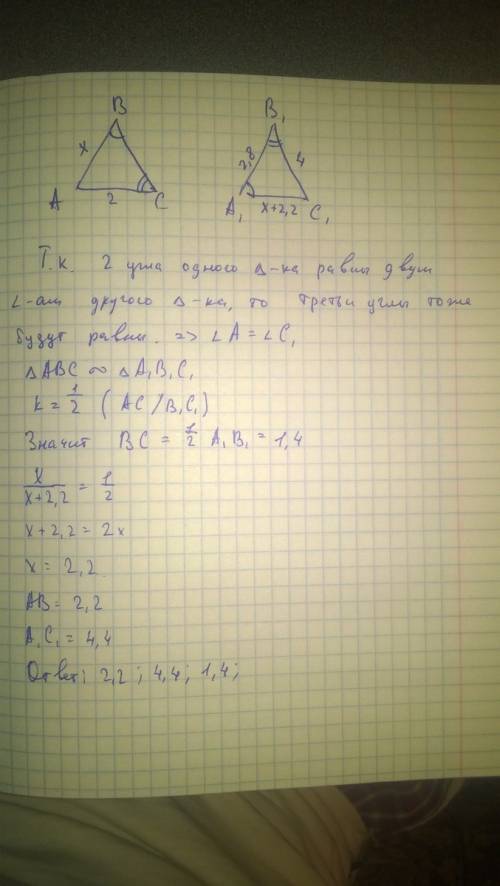 B
B₁
x
2,8
4
A
2
C
A₁
x+2,2
C₁
Т.к. 2 угла одного Δ-ка равны двум
∠-ам другого Δ-ка, то третьи углы тоже
будут равны. => ∠A = ∠C₁
ΔABC ∞ ΔA₁B₁C₁
k = 1/2 (AC/B₁C₁)
Значит BC = 1/2 A₁B₁ = 1,4
x/(x+2,2) = 1/2
x+2,2 = 2x
x = 2,2
AB = 2,2
A₁C₁ = 4,4
Ответ: 2,2; 4,4; 1,4;